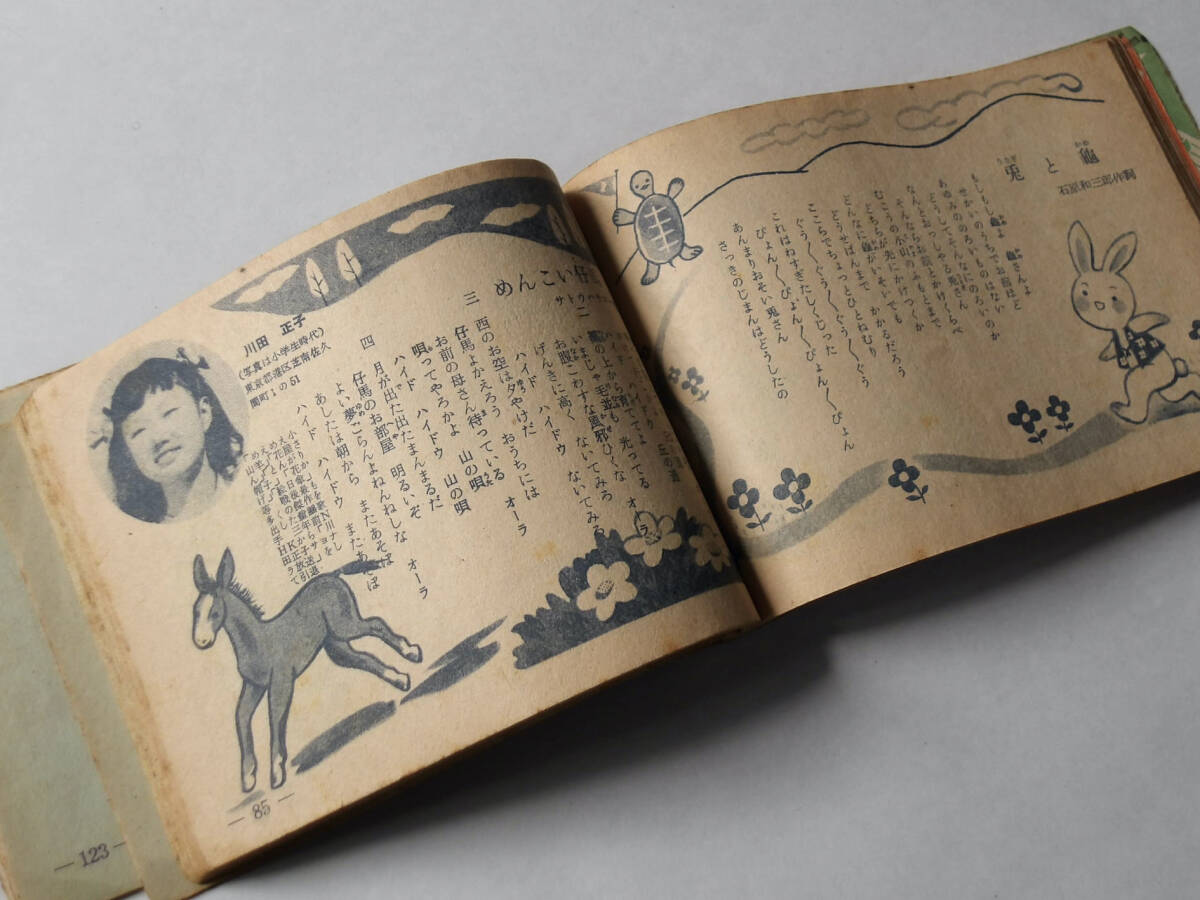 兎と龜
石原和三郎作詞
もしもし龜よ龜さんよ
せかいのうちでお前ほど
あゆみののろいものはない
どうしてそんなにのろいのか
なんとおっしゃる兎さん
そんならお前とかけくらべ
むこうの小山のふもとまで
どちらが先にかけつくか
どんなに龜がいそいでも
どうせばんまでかかるだろう
ここらでちょっとひとねむり
ぐう〱ぐう〱ぐう〱ぐう
これはねすぎたしくじった
ぴょん〱ぴょん〱ぴょん〱ぴょん
あんまりおそい兎さん
さっきのじまんはどうしたの
めんこい仔
サトウハチ
二
光ってる オーラ
いまじゃ毛並も
お腹こわすな風邪ひくな
げんきに高く ないてみろ ないてみろ
ハイド ハイドウ
三 西のお空は夕やけだ オーラ
仔馬よかえろう おうちには
お前の母さん待っている
唄ってやろかよ 山の唄 山の唄
ハイド ハイドウ
四 月が出た出たまんまるだ オーラ
仔馬のお部屋 明るいぞ
よい夢ごらんよねんねしな
あしたは朝から またあそぼ またあそぼ
ハイド ハイドウ
川田 正子
(写真は小学生時代)
東京都港区芝南佐久
間町1の51
—85—
—123—